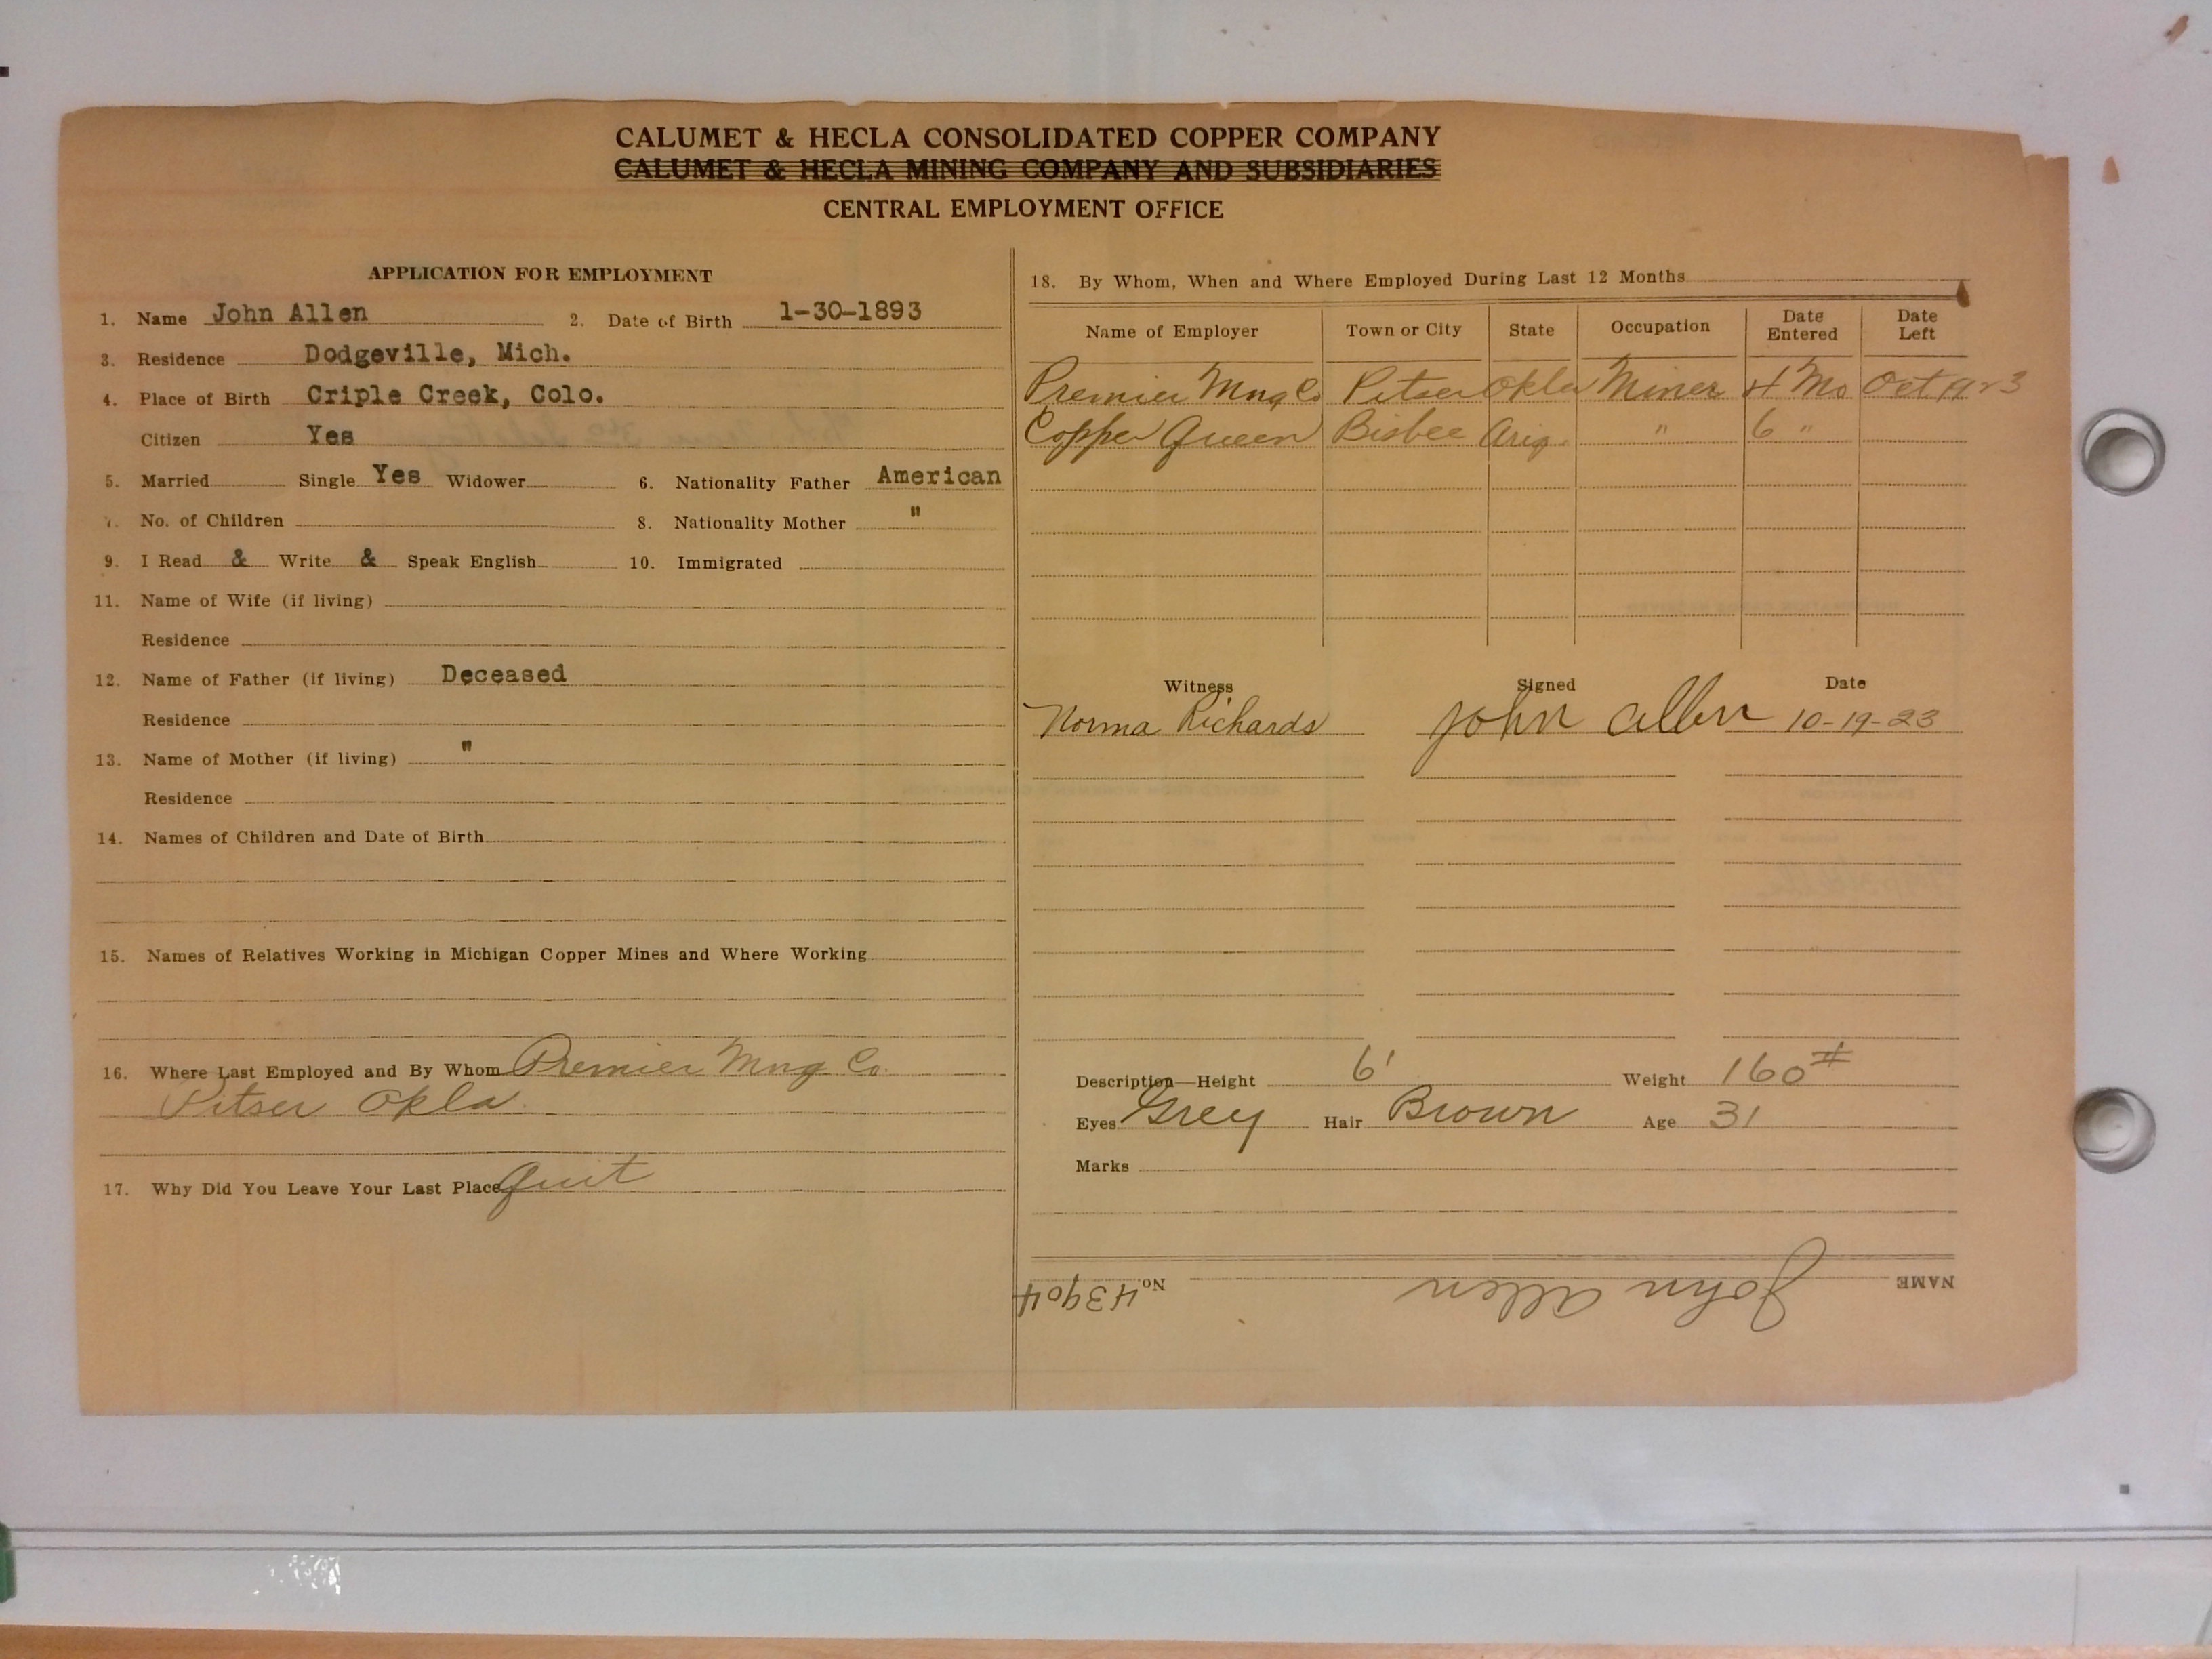 CALUMET & HECLA CONSOLIDATED COPPER COMPANY
CALUMET & HECLA MINING COMPANY AND SUBSIDIARIES
CENTRAL EMPLOYMENT OFFICE
APPLICATION FOR EMPLOYMENT
1. Name John Allen 2. Date of Birth 1-30-1893
3. Residence Dodgeville, Mich.
4. Place of Birth Criple Creek, Colo.
Citizen Yes
5. Married Single Yes Widower 6. Nationality Father American
7. No. of Children 8. Nationality Mother "
9. I Read & Write & Speak English 10. Immigrated
11. Name of Wife (if living)
Residence
12. Name of Father (if living) Deceased
Residence
13. Name of Mother (if living) "
Residence
14. Names of Children and Date of Birth
15. Names of Relatives Working in Michigan Copper Mines and Where Working
16. Where Last Employed and By Whom Premier Mng Co.
Pitser Okla
17. Why Did You Leave Your Last Place Quit
18. By Whom, When and Where Employed During Last 12 Months
Name of Employer Town or City State Occupation Date Entered Date Left
Premier Mng Co Pitser Okla Miner 4 Mo Oct 1923
Copper Queen Bisbee Ariz. " 6 "
Witness Signed Date
Norma Richards John Allen 10-19-23
Description—Height 6' Weight 160#
Eyes Grey Hair Brown Age 31
Marks
NAME John Allen No. 43904